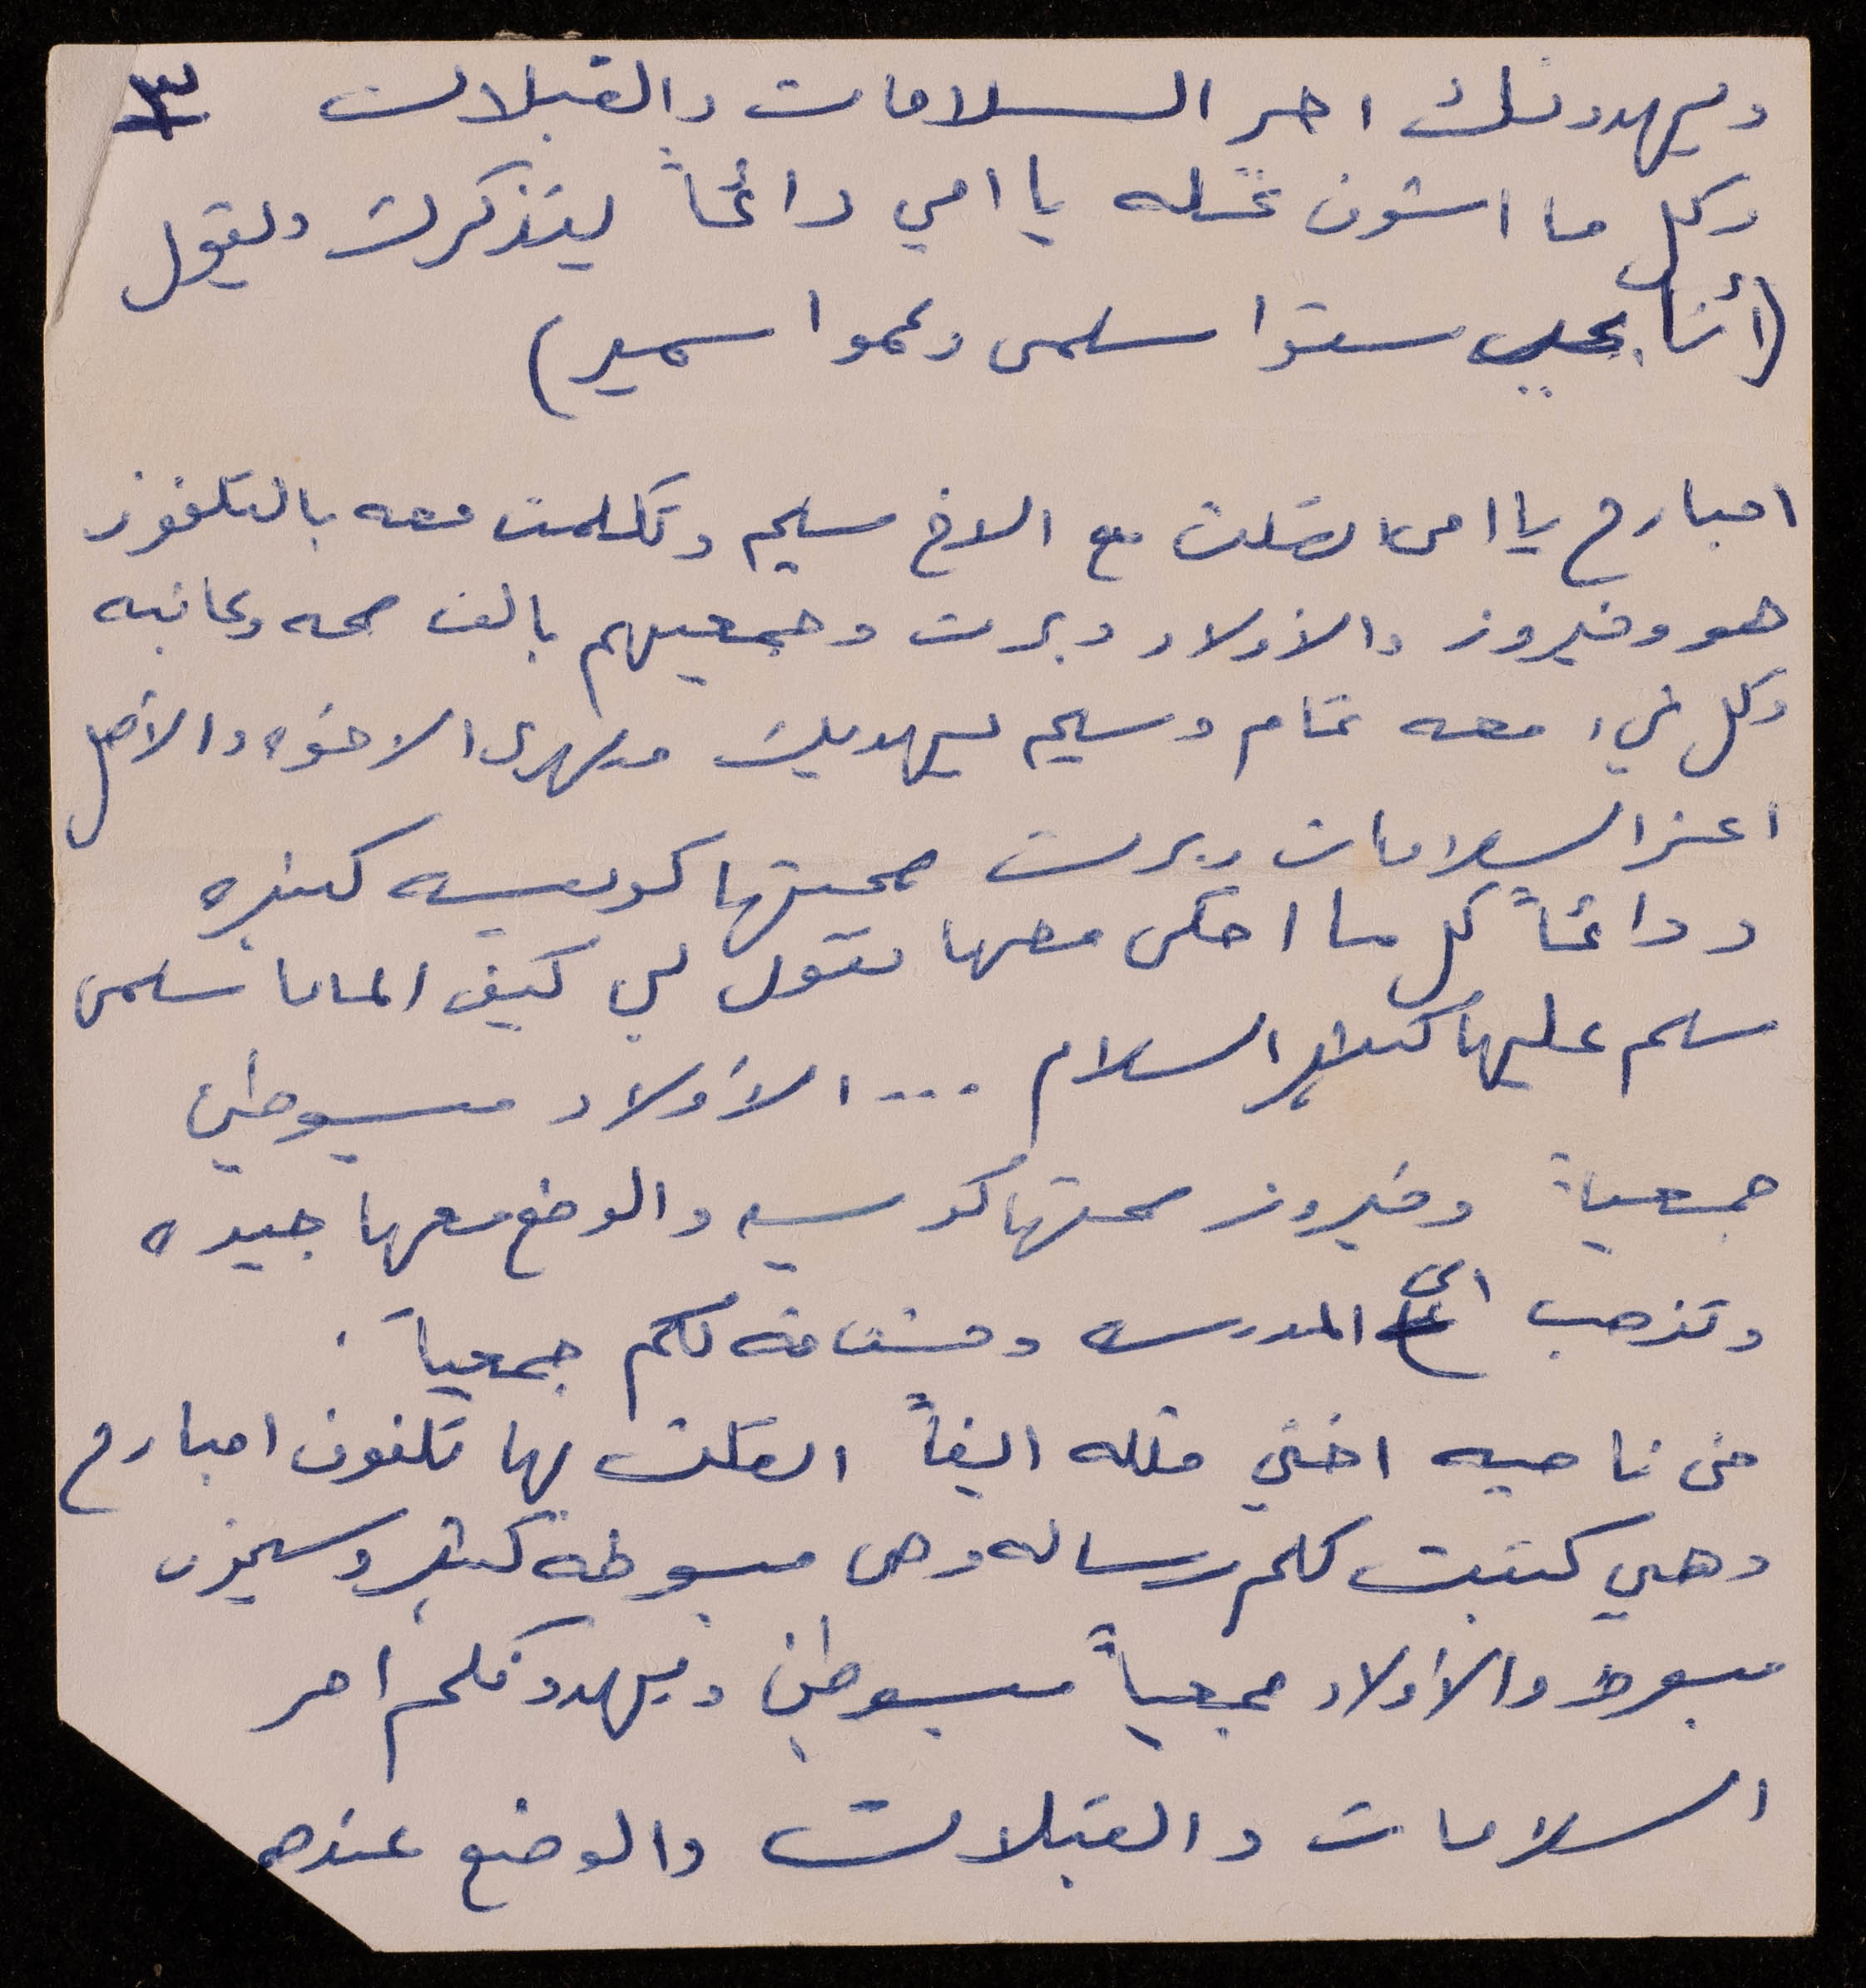 ويهدونك احر السلامات والقبلات ٣
وكل ما اشوف عبدالله يا امي دائماً ليتذكرك وليقول
(أنا بحب ستوا سلمى وعموا سمير)
امبارح يا امي اتصلت مع الاخ سليم وتكلمت معه بالتلفون
هو وفيروز والأولاد وبرت وجمعيهم بالف صحه وعافيه
وكل شيء معه تمام وسليم يهديك ويهدى الاخوه والأهل
اعز السلامات وبرت صحتها كويسه كثيره
ودائماً كل ما احكي معها تقول لي كيف الماما سلمى
سلم عليها كثير السلام ... الأولاد مبسوطين
جمعياً وفيروز صحتها كويسه والوضع معها جيده
وتذهب الى المدرسه ومشتاقه لكم جمعياً .
من ناحيه اختي ايضاً اتصلت لها تلفون امبارح
وهي كتبت لكم رساله وهي مبسوطه كثير
مبسوط والأولاد جمعياً مبسوطين ويهدونكم احر
السلامات والقبلات والوضع عندهم